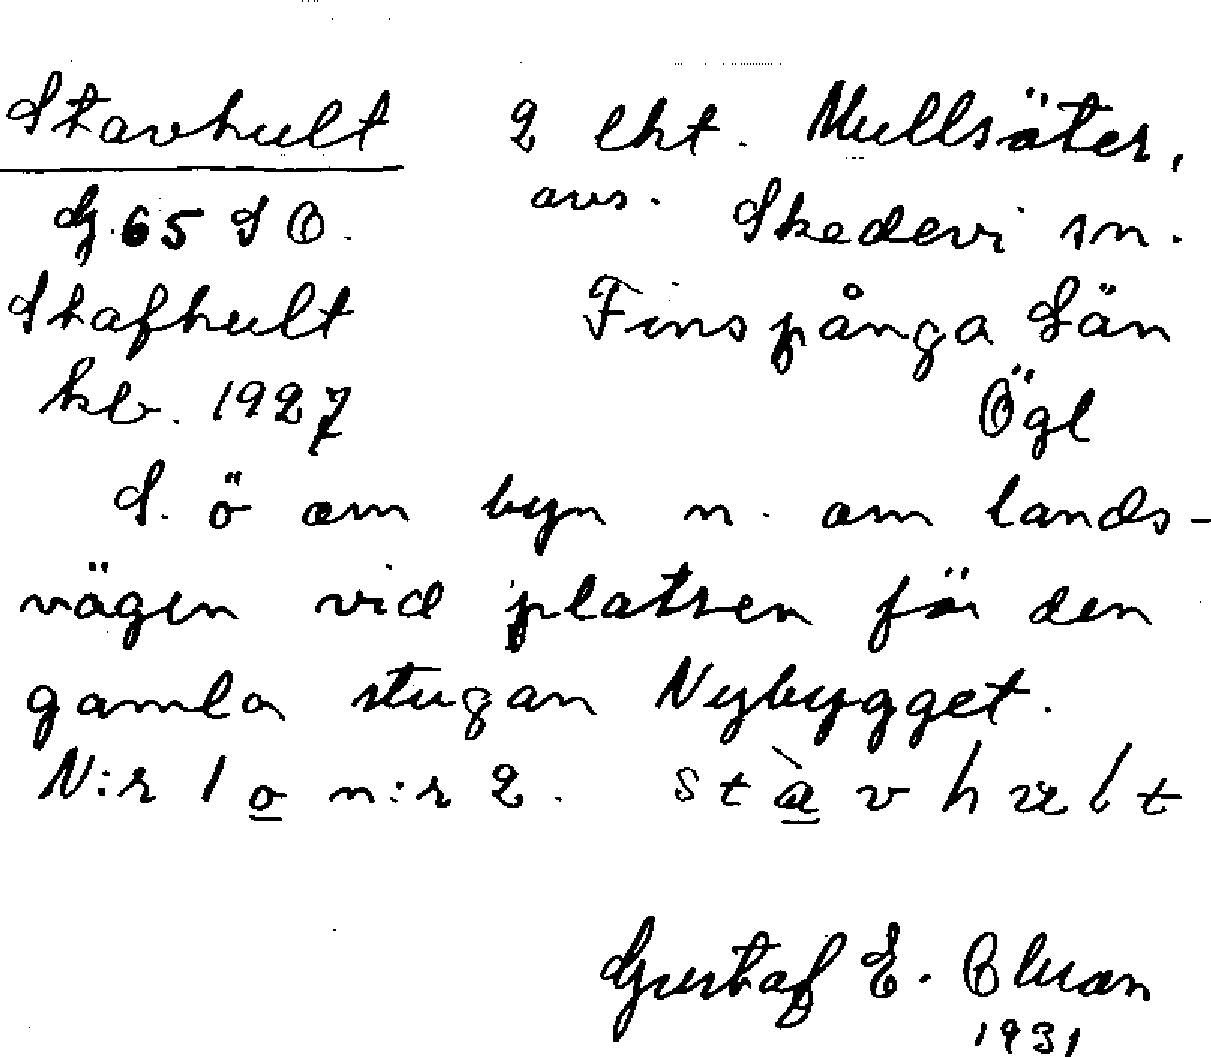 Stavhult 2 lht. Mullsäter,
G. 65 S O. avs. Skedevi sn.
Stafhult Finspånga Län
kb. 1927 Ögl
S. ö om byn n. om lands-
vägen vid platsen för den
gamla stugan Nybygget.
N:r 1 o n:r 2. stàvhult
Gustaf E.
1931